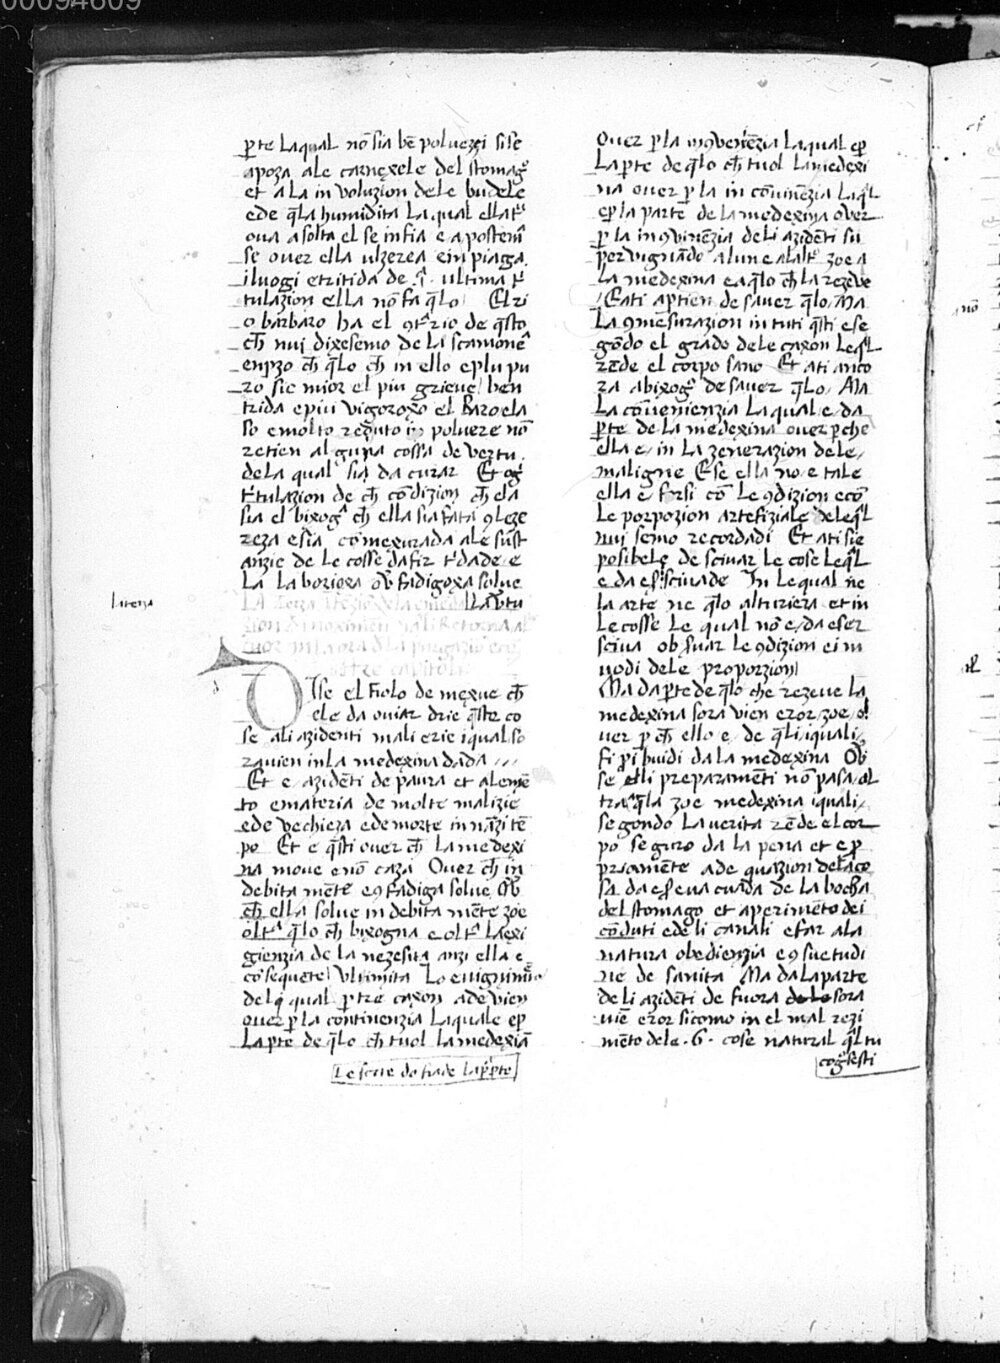 00094609
p̄te laqual nō sia bē poluezzi si se
apoza ale carnexele del stomago
et ala in voluzion dele budele
ede q̄la humidita laqual ella tͬ
oua asolta el se infia e apostem̄
se ouer ella ulzerea ein piaga
iluogi etritida de q̄ · ultima tͬ
tulazion ella nō fa q̄lo Elzi
o barbaro ha el 9tͬrio de q̄sto
ch̄ nui dixesemo de la scamonea
enp̄zo ch̄ q̄lo ch̄ in ello eplu pu
ro sie mior el piu grieue ben
trida epiu vigoroxo el Baroela
so emolto reḡuto in poluere nō
retien alguna cossa de vertu
dela qual sia da curar Et ogͥ
tͬtulazion de ch̄ condizion ch̄ ela
sia el bixogͣ ch̄ ella sia fata 9leze
reza esia comexurada ale sust
anzie de le cosse da fir tͬdade e
la laborioxa ov̄ fadigoxa solue
la v̄tu
laterza
Isse el fiolo de mexue ch̄
ele da ouiar drie q̄ste co
se ali azidenti mali erie iqual so
rauien inla medexina dada
Et e azidēti de paura et alemē
to emateria de molte malizie
ede vechieza edemorte in nāzi tē
po Et e q̄sti ouer ch̄ la medexi
na moue enō caza Ouer ch̄ in
debita mēte e9 fadiga solue Ov̄
ch̄ ella solue in debita mēte zoe
oltͬa q̄lo ch̄ bixogna e oltͬ laexi
gienzia de la nezesita anzi ella e
cōsequete vltimita Lo euignimēto
deli qual p̄ tre caxon adevien
ouer p̄ la continenzia laquale ep̄
la p̄te de q̄lo ch̄ tuol la medexīa
Le scrite do fiade la p̄p̄te
Ouer p̄la in9venēzia laqual ep̄
la p̄te de q̄lo ch̄ tuol la medexi
na ouer p̄ la in cōuinēzia laq̄l
ep̄ la parte de la medexina over
p̄ la in9vinēzia deli azidēti su
pervignādo alune alaltͦ zoe a
la medexina ea q̄lo ch̄ la rezeve
E ati aptien de sauer q̄lo Ma
la 9mesurazion in tuti q̄sti ese
gōdo el grado dele caxon leq̄l
rēde el corpo sano Et ati anco
ra abixogͣ de sauer q̄lo Ma
la cōuenienzia laqual e da
p̄te de la medexina ouer p̄che
ella e in la zenerazion dele
maligne E se ella no e tale
ella e forsi cō le 9dizion ecō
le porpozion artefiziale deleq̄l
nui semo recordadi Et ati sie
posibele de scivar le cose leq̄l
e da esͬ scivade In lequal ne
la arte ne q̄lo alturiera et in
le cosse le qual nō e da eser
sciua obsͬuar le 9dizion ei m
uodi dele proporzioni
Ma da p̄te de q̄lo che rezeve la
medexina sora vien eror zoe o
uer p̄ ch̄ ello e de q̄li iquali
fi p̄ibuidi da la medexina Ov̄
se elli preparamēti nō pasa ol
tra q̄la zoe medexina iquali
segondo la verita rēde el cor
po seguro da la pena et e p̄
priamēte ade quazion dela co
sa da esͬ euacuada de la bocha
del stomago et aperimēto dei
cōduti ede li canali e far ala
natura obedienzia e 9suetudi
ne de sanita Ma da la parte
de li azidēti de fuora de le sora
viē eror sicomo in el mal rezi
mēto dele · 6 · cose natural q̄l tu
cogͣsesti